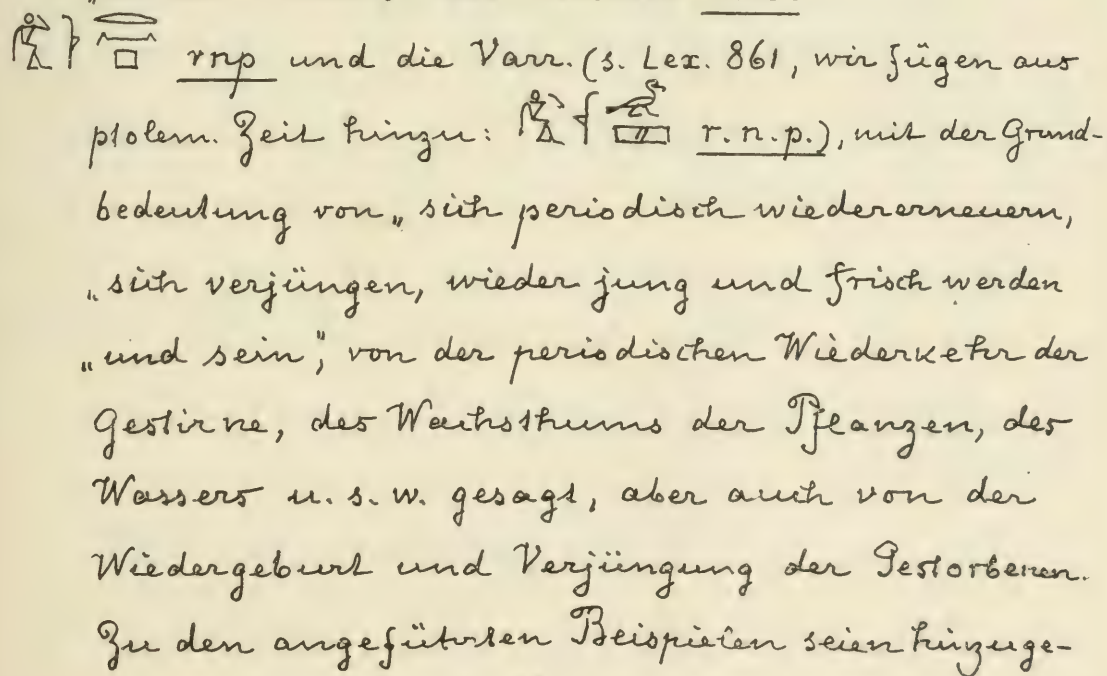 rnp und die Varr. (s. Lex. 861, wir fügen aus
ptolem. Zeit hinzu: r. n. p.), mit der Grund-
bedeutung von „sich periodisch wiedererneuern,
„sich verjüngen, wieder jung und frisch werden
„und sein“, von der periodischen Wiederkehr der
Gestirne, des Wachsthums der Pflanzen, des
Wassers u. s. w. gesagt, aber auch von der
Wiedergeburt und Verjüngung der Gestorbenen.
Zu den angeführten Beispielen seien hinzuge-